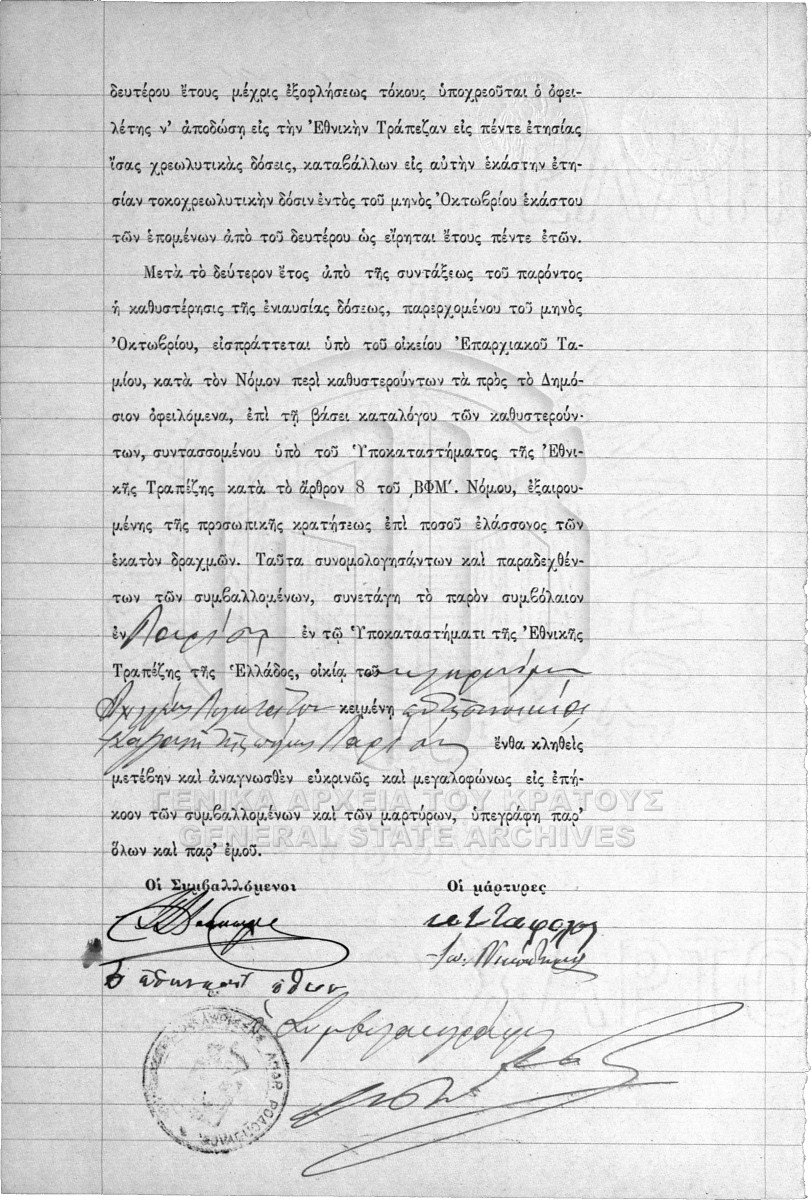 δευτέρου ἔτους μέχρις ἐξοφλήσεως τόκους ὑποχρεοῦται ὁ ὀφει-
λέτης ν' ἀποδώσῃ εἰς τὴν Ἐθνικὴν Τράπεζαν εἰς πέντε ἐτησίας
ἴσας χρεωλυτικὰς δόσεις, καταβάλλων εἰς αὐτὴν ἑκάστην ἐτη-
σίαν τοκοχρεωλυτικὴν δόσιν ἐντὸς τοῦ μηνὸς Ὀκτωβρίου ἑκάστου
τῶν ἑπομένων ἀπὸ τοῦ δευτέρου ὡς εἴρηται ἔτους πέντε ἐτῶν.
Μετὰ τὸ δεύτερον ἔτος ἀπὸ τῆς συντάξεως τοῦ παρόντος
ἡ καθυστέρησις τῆς ἐνιαυσίας δόσεως, παρερχομένου τοῦ μηνὸς
Ὀκτωβρίου, εἰσπράττεται ὑπὸ τοῦ οἰκείου Ἐπαρχιακοῦ Τα-
μίου, κατὰ τὸν Νόμον περὶ καθυστερούντων τὰ πρὸς τὸ Δημό-
σιον ὀφειλόμενα, ἐπὶ τῇ βάσει καταλόγου τῶν καθυστερούν-
των, συντασσομένου ὑπὸ τοῦ Ὑποκαταστήματος τῆς Ἐθνι-
κῆς Τραπέζης κατὰ τὸ ἄρθρον 8 τοῦ ΒΦΜ΄. Νόμου, ἐξαιρου-
μένης τῆς προσωπικῆς κρατήσεως ἐπὶ ποσοῦ ἐλάσσονος τῶν
ἑκατὸν δραχμῶν. Ταῦτα συνομολογησάντων καὶ παραδεχθέν-
των τῶν συμβαλλομένων, συνετάγη τὸ παρὸν συμβόλαιον
ἐν Λαρίσῃ ἐν τῷ Ὑποκαταστήματι τῆς Ἐθνικῆς
Τραπέζης τῆς Ἑλλάδος, οἰκίᾳ τοῦ
κειμένῃ
Λαρίσης ἔνθα κληθεὶς
μετέβην καὶ ἀναγνωσθὲν εὐκρινῶς καὶ μεγαλοφώνως εἰς ἐπή-
κοον τῶν συμβαλλομένων καὶ τῶν μαρτύρων, ὑπεγράφη παρ'
ὅλων καὶ παρ' ἐμοῦ.
ΓΕΝΙΚΑ ΑΡΧΕΙΑ ΤΟΥ ΚΡΑΤΟΥΣ
GENERAL STATE ARCHIVES
Οἱ Συμβαλλόμενοι Οἱ μάρτυρες
ὁ Συμβολαιογράφος